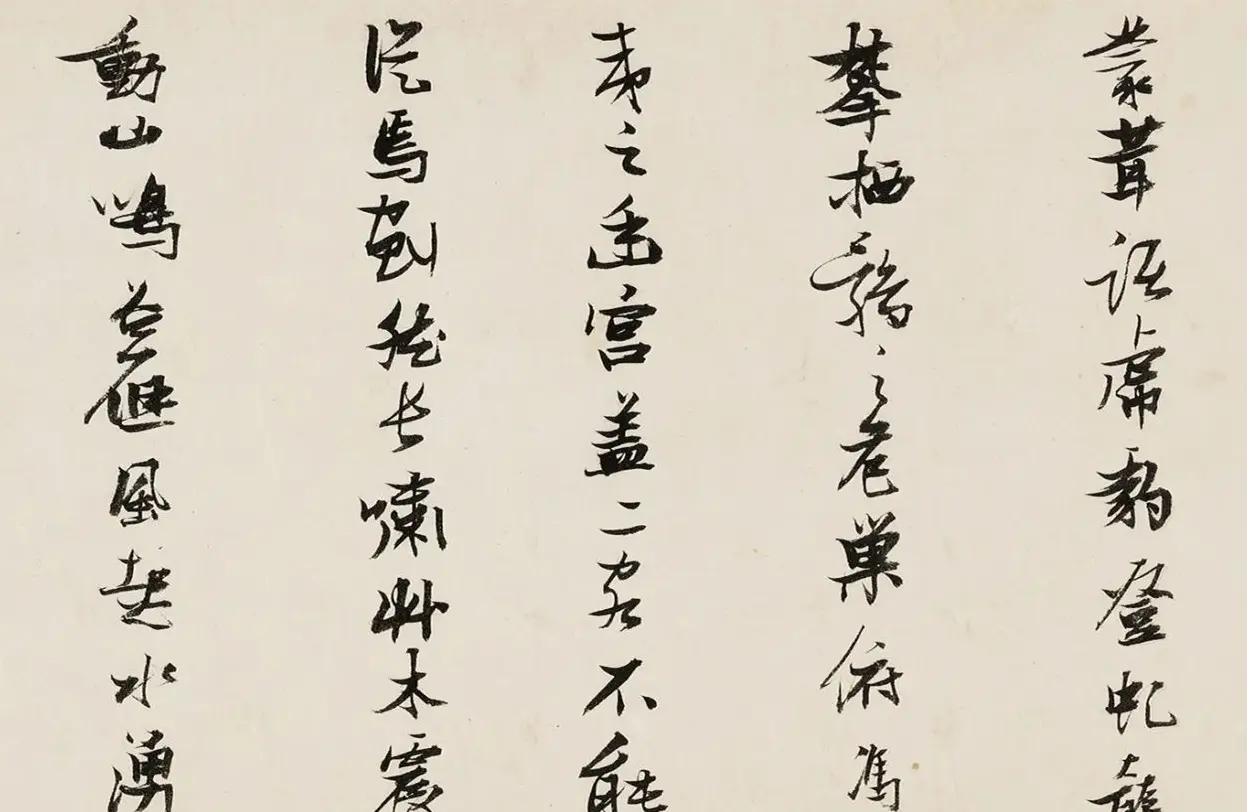 蒙茸踞虎豹登虬龍
攀栖鶻之危巢俯馮
夷之幽宮盖二客不能
從焉劃然長嘯艸木震
動山鳴谷應風起水湧